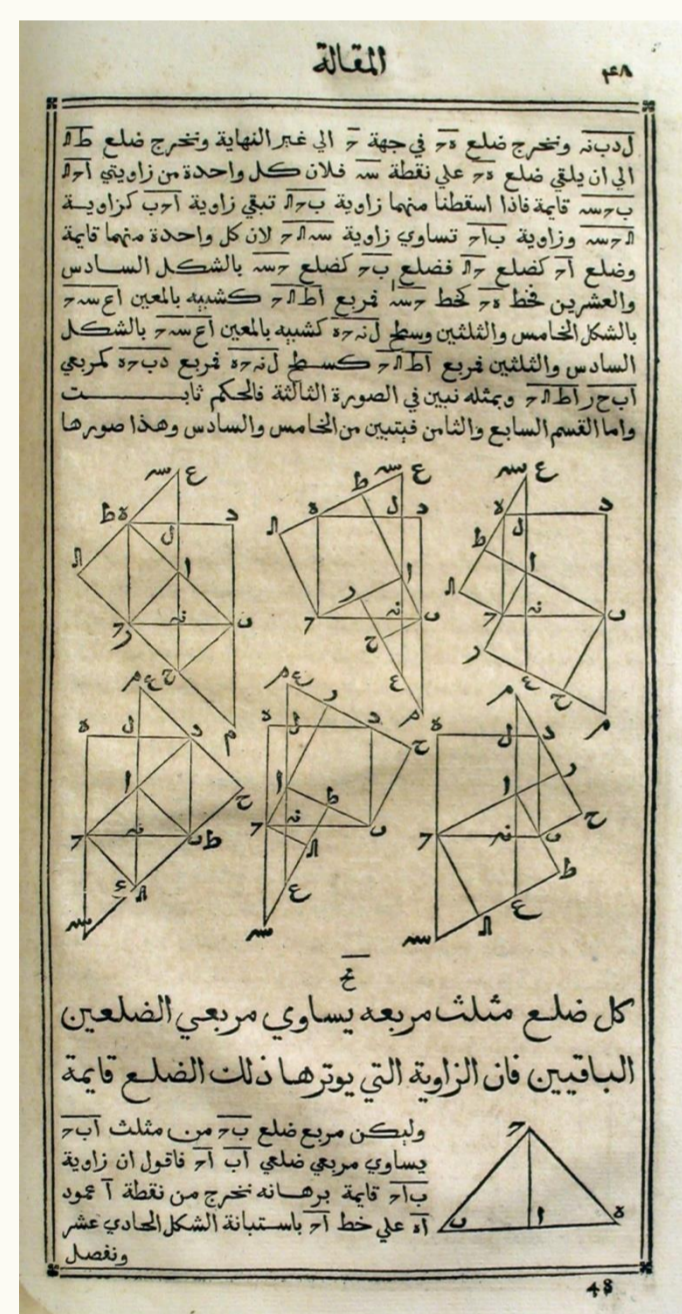 المقالة
٤٨
ل د ب نه ونخرج ضلع ه ح في جهة ح الي غير النهاية ونخرج ضلع ط ك
الي ان يلقي ضلع ه ح علي نقطة سه فلان كل واحدة من زاويتي ا ح ك
ب ح سه قايمة فاذا اسقطنا منهما زاوية ب ح ك تبقي زاوية ا ح ب كزاوية
ك ح سه وزاوية ب ا ح تساوي زاوية سه ك ح لان كل واحدة منهما قايمة
وضلع ا ح كضلع ح ك فضلع ب ح كضلع ح سه بالشكل السادس
والعشرين فخط ه ح كخط ح سه فمربع ا ط ك ح كشبيه بالمعين ا ع سه ح
بالشكل الخامس والثلثين وسطح ل نه ح ه كشبيه بالمعين ا ع سه ح بالشكل
السادس والثلثين فمربع ا ط ك ح كسطح ل نه ح ه فمربع د ب ح ه كمربعي
ا ب ح ر ا ط ك ح وبمثله نبين في الصورة الثالثة فالحكم ثابت
واما القسم السابع والثامن فيتبين من الخامس والسادس وهذا صورها
سه ع
سه ع
سه ع
ه ط ل د
ط ه ل د
ه ل د
ك ا
ك ا
ط ك ا
ح ر نه ب
ح ر نه ب ح
ح نه ب ر
ح م
ع م
ع ح م
م ع
ع م ر
م
ه ل د
ه ل د ح
ه ل د ر
ا ح
ا ط
ا ح
ح نه ب ط
ح نه ب ك
ح نه ب ط
ع ك
ع
ع ك
سه
سه
سه
مح
كل ضلع مثلث مربعه يساوي مربعي الضلعين
الباقيين فان الزاوية التي يوترها ذلك الضلع قايمة
وليكن مربع ضلع ب ح من مثلث ا ب ح
يساوي مربعي ضلعي ا ب ا ح فاقول ان زاوية
ب ا ح قايمة برهانه نخرج من نقطة ا عمود
ا ه علي خط ا ح باستبانة الشكل الحادي عشر
ونفصل
ح
ب ا ه
48